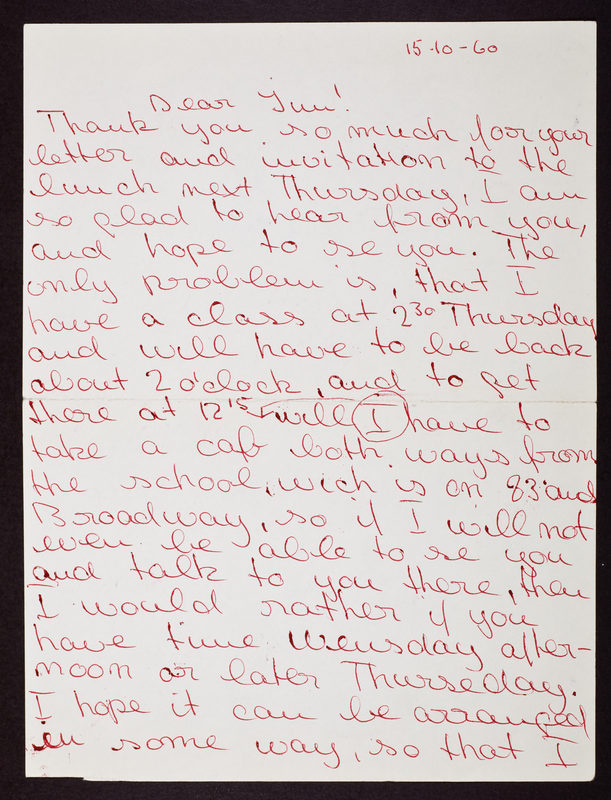 15-10-60
Dear Jim!
Thank you so much for your
letter and invitation to the
lunch next Thursday, I am
so glad to hear from you,
and hope to se you. The
only problem is, that I
have a class at 2³⁰ Thursday
and will have to be back
about 2 o'clock, and to get
there at 12¹⁵ will I have to
take a cab both ways from
the school, wich is on 83 and
Broadway, so if I will not
even be able to se you
and talk to you there, then
I would rather if you
have time Wensday after-
noon or later Thurseday.
I hope it can be arranged
in some way, so that I